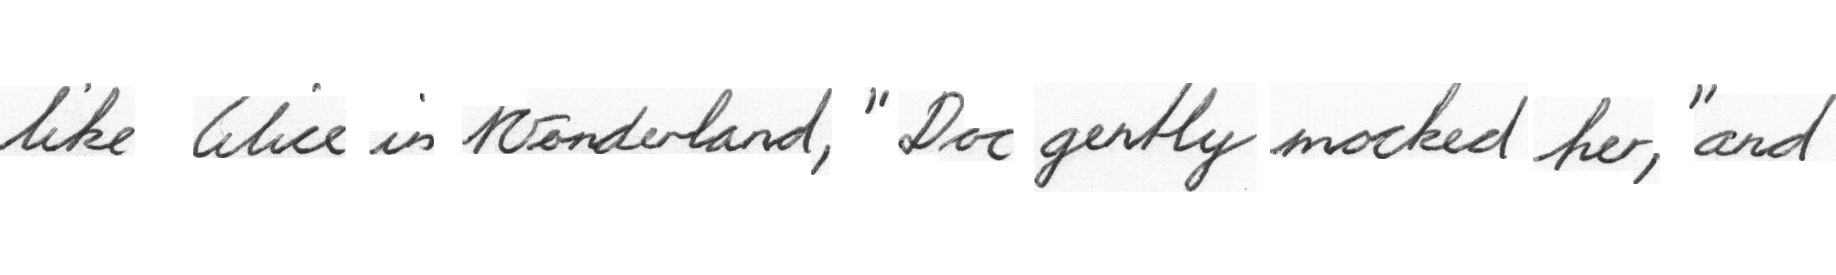 like Alice in Wonderland," Doc gently mocked her, "and